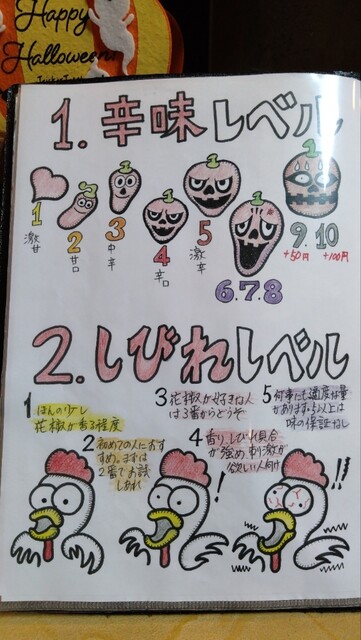 Happy
Halloween
1. 辛味レベル
1
激甘
2
甘口
3
中辛
4
辛口
5
激辛
6.7.8
9.10
+50円 +100円
2.しびれレベル
1 ほんの少し
花椒が香る程度
2 初めての人におす
すめ。まずは
2番でお試
しあれ
3 花椒が好きな人
は3番からどうぞ
4 香り、しびれ具合
が強め、刺激が
欲しい人向け
5 何事にも適度な量
があります。5以上は
味の保証なし
!
!!